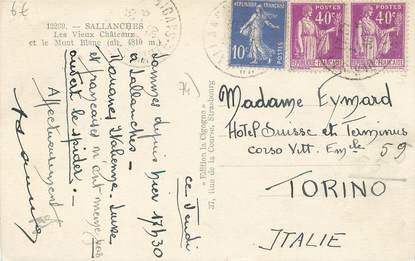 6€
12269. - SALLANCHES
Les Vieux Châteaux
et le Mont Blanc (alt. 4810 m.)
RÉPUBLIQUE FRANÇAISE
10c
POSTES
40c
RÉPUBLIQUE FRANÇAISE
40c
RÉPUBLIQUE FRANÇAISE
(74)
ce Jeudi
Sommes depuis hier 17h30
à Sallanches.
Douanes Italienne, Suisse
et françaises n'ont même pas
ouvert le spider.
Affectueusement
"Edition la Cigogne"
37, rue de la Course, Strasbourg
Madame Eymard
Hôtel Suisse et Terminus
Corso Vitt. Em^le 59
TORINO
ITALIE